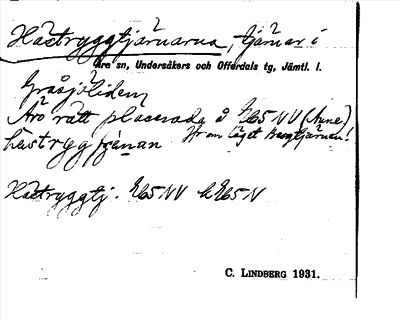 Hästryggtjärnarna, tjärnar i
Åre sn, Undersåkers och Offerdals tg, Jämtl. l.
Gråsjöliden
Äro rätt placerade å 265 NV (Aune)
Jfr om läget Bergtjärnen!
hästryggtjänan
Hästryggtj. 265 NV & 265 N
C. LINDBERG 1931.